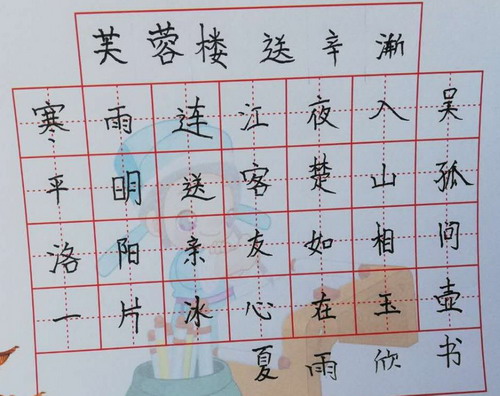 芙蓉楼送辛渐
寒雨连江夜入吴
平明送客楚山孤
洛阳亲友如相问
一片冰心在玉壶
夏雨欣书